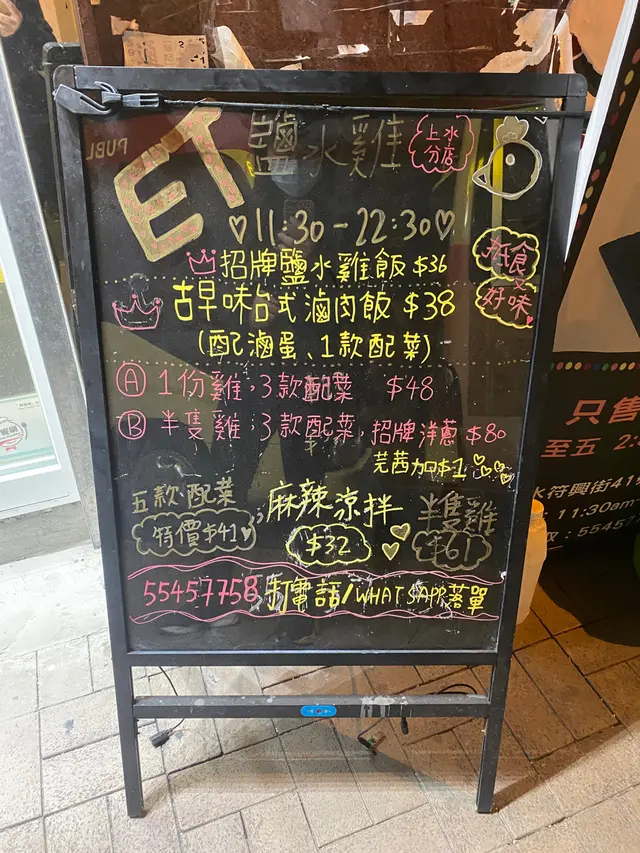 ET 鹽水雞
上水
分店
♡11:30-22:30♡
招牌鹽水雞飯 $36
抵食
好味
古早味台式滷肉飯 $38
(配滷蛋、1款配菜)
Ⓐ 1份雞,3款配菜 $48
Ⓑ 半隻雞,3款配菜,招牌洋蔥 $80
芫茜加$1
五款配菜
特價$41
麻辣涼拌
$32
半隻雞
$61
55457758 打電話/WHATSAPP落單
PUBL
只售
至五 2:
水符興街41
: 11:30am
: 5545